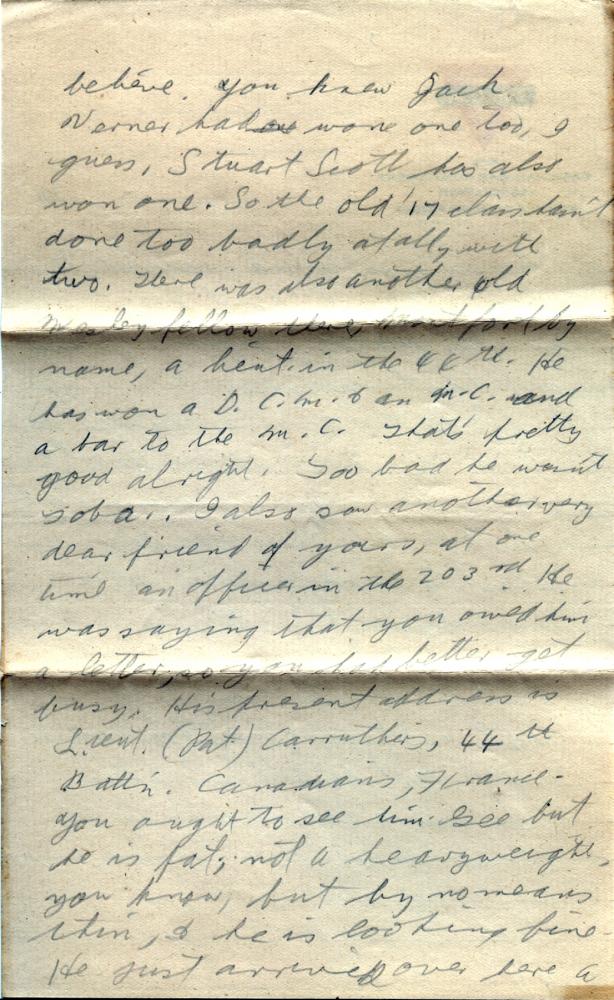 believe. You knew Jack
Verner had won one too, I
guess, Stuart Scott has also
won one. So the old '17 class hasn't
done too badly atall, with
two. There was also another old
Wesley fellow there, Mountford by
name, a lieut. in the 44th. He
has won a D.C.M. & an M.C. and
a bar to the M.C. That's pretty
good alright. Too bad he wasn't
I also saw another very
dear friend of yours, at one
time an officer in the 203rd He
was saying that you owed him
a letter, so you had better get
busy. His present address is
Lieut. (Pat) Carruthers, 44th
Batt'n. Canadians, France-
You ought to see him. Gee but
he is fat; not a heavyweight,
you know, but by no means
thin, & he is looking fine-
He just arrived over here a